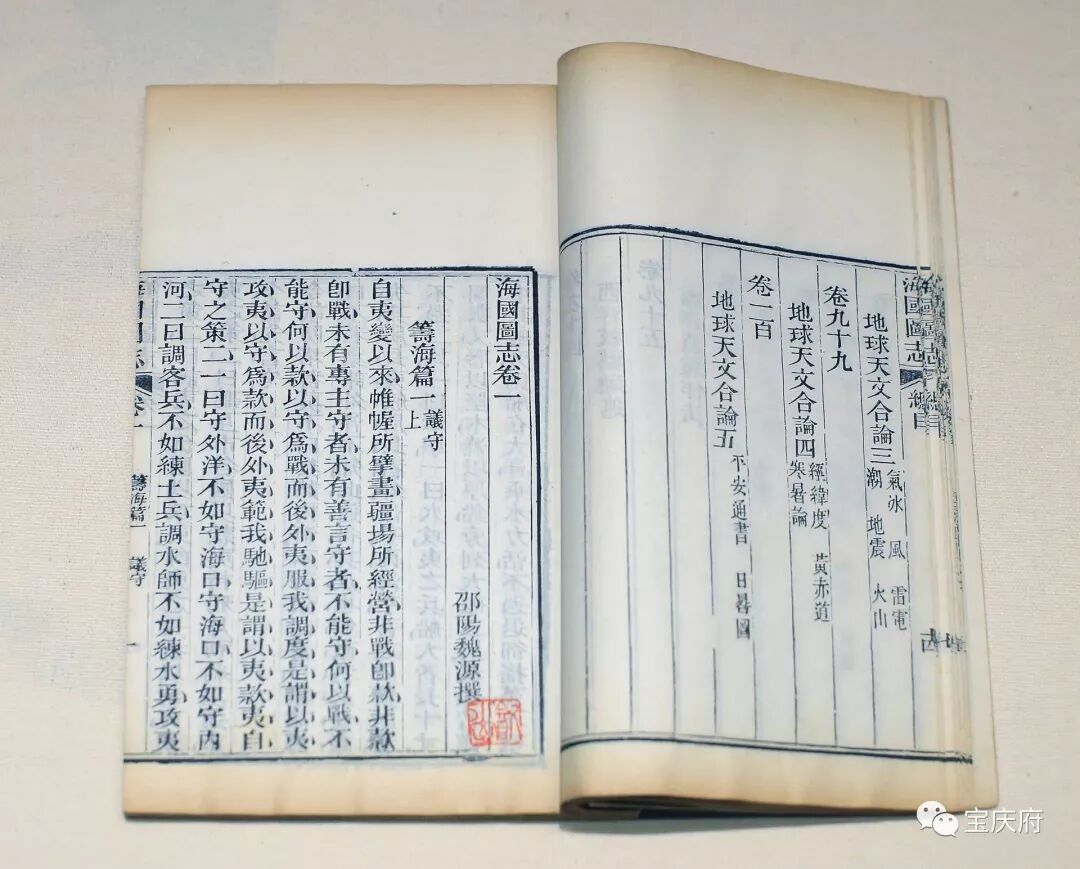 海國圖志 總目
地球天文合論三 氣冰 風 雷電
潮 地震 火山
卷九十九
地球天文合論四 經緯度 黃赤道
寒暑論
卷一百
地球天文合論五 平安通書 日晷圖
海國圖志卷一
邵陽魏源撰
籌海篇一 議守上
自夷變以來帷幄所擘畫疆場所經營非戰卽款非款
卽戰未有專主守者未有善言守者不能守何以戰不
能守何以款以守爲戰而後外夷服我調度是謂以夷
攻夷以守爲款而後外夷範我馳驅是謂以夷款夷自
守之策二一曰守外洋不如守海口守海口不如守內
河二曰調客兵不如練土兵調水師不如練水勇攻夷
海國圖志 卷一 籌海篇一 議守 一
宝庆府